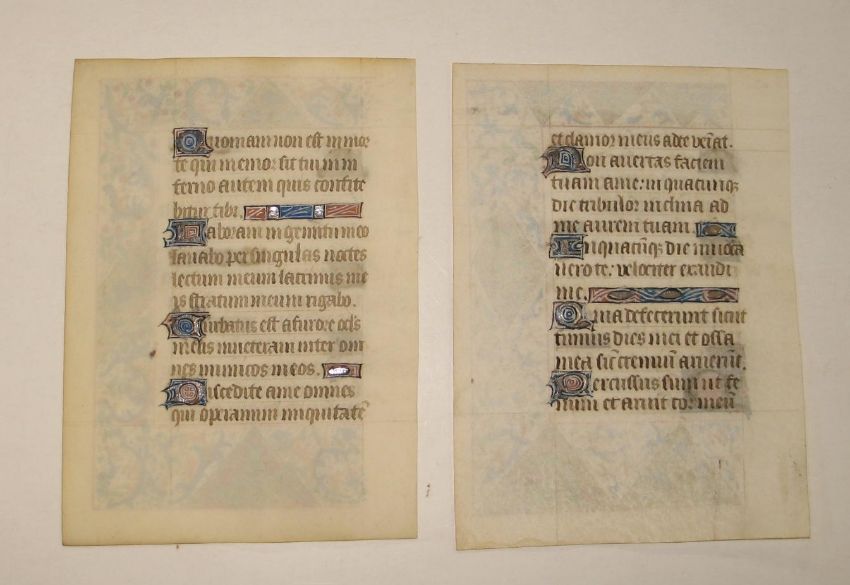 Quoniam non est in mor
te qui memor sit tui in in
ferno autem quis confite
bitur tibi.
Laboraui in gemitu meo
lauabo per singulas noctes
lectum meum lacrimis me
is stratum meum rigabo.
Turbatus est a furore ocls
meus inueteraui inter om
nes inimicos meos.
Discedite a me omnes
qui operamini iniquitatē
et clamor meus ad te veīat.
Non auertas faciem
tuam a me: in quacunqꝫ
die tribulor inclina ad
me aurem tuam
In quacūqꝫ die inuoca
uero te: velociter exaudi
me.
Quia defecerunt sicut
fumus dies mei et ossa
mea sic cremiū aruerūt.
Percussus sum ut fe
num et aruit cor meū